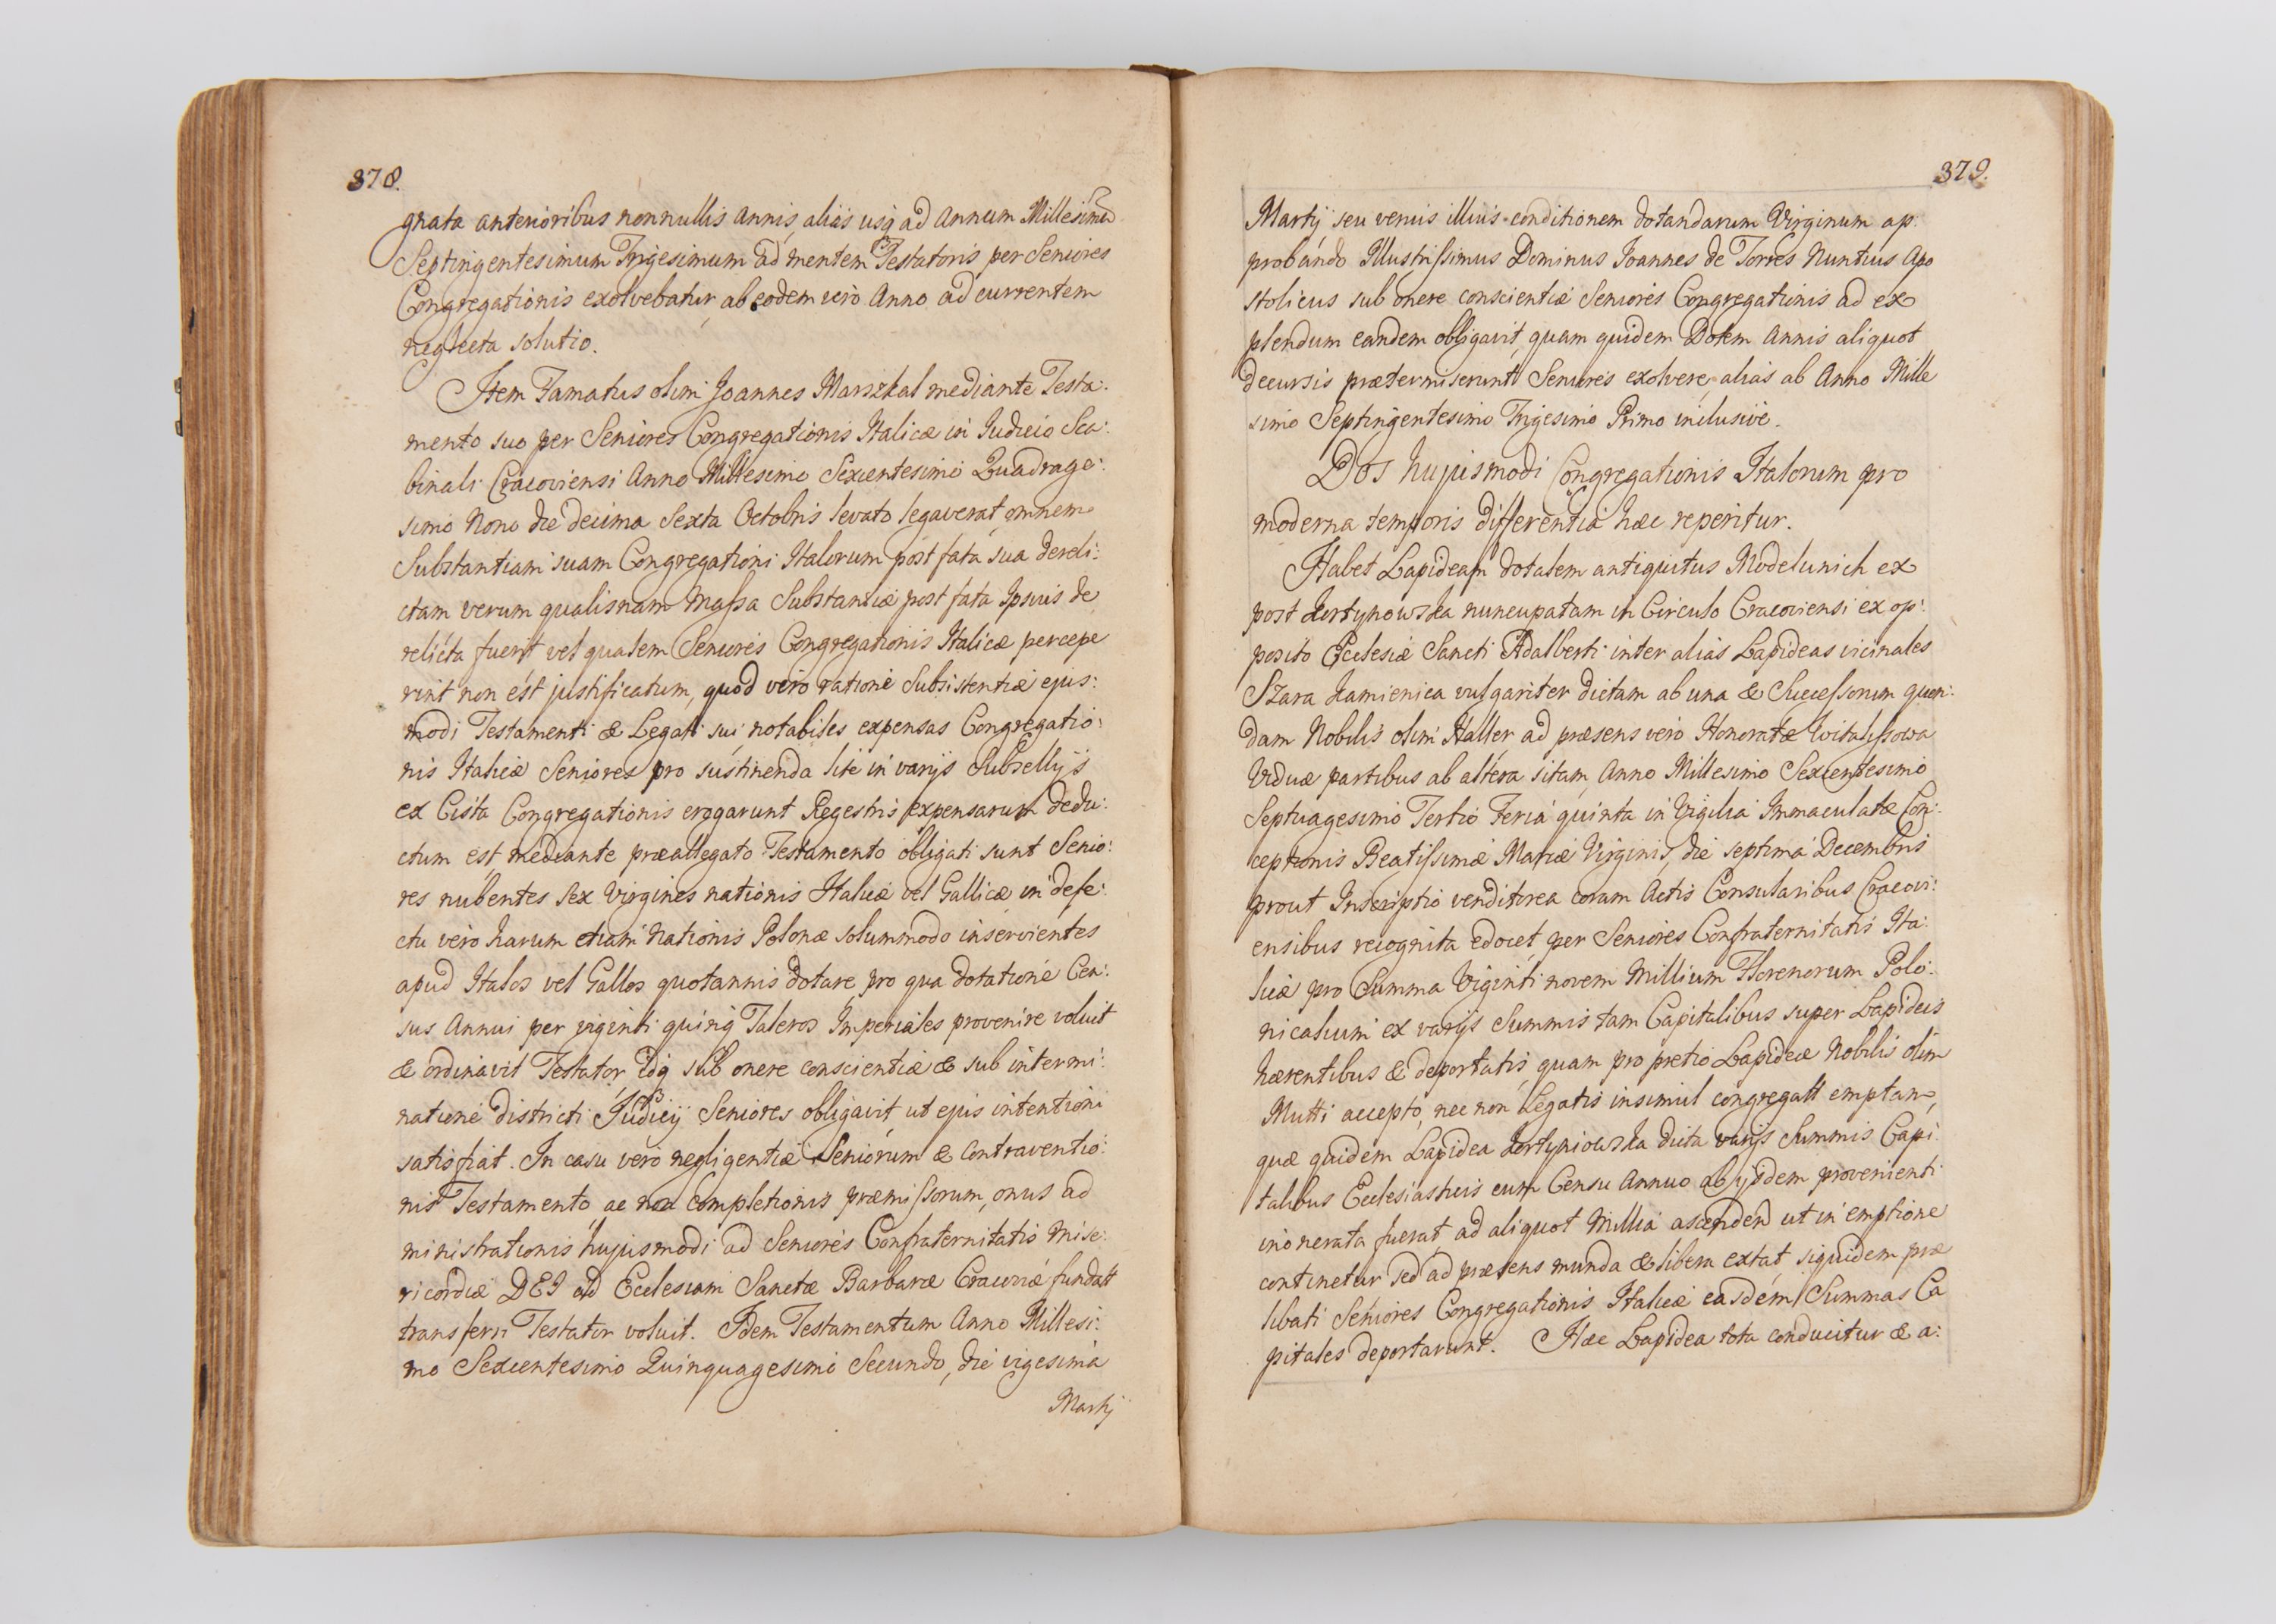 378.
gnata anterioribus nonnullis Annis, alias usq ad Annum Millesimum
Septingentesimum Trigesimum ad mentem Testatoris per Seniores
Congregationis exolvebatur, ab eodem vero Anno ad currentem
neglecta solutio.
Item Famatus olim Joannes Marszkal mediante Testa:
mento suo per Seniores Congregationis Italicæ in Judicio Sca:
binali Cracoviensi Anno Millesimo Sexcentesimo Quadrage:
simo Nono die decima Sexta Octobris levato legaverat, omnem
Substantiam suam Congregationi Italorum post fata sua dereli:
ctam verum qualisnam Massa Substantiæ post fata Ipsius de
relicta fuerit vel qualem Seniores Congregationis Italicæ percepe
rint non est justificatum, quod vero ratione Subsistentiæ ejus:
modi Testamenti & Legati sui notabiles expensas Congregatio:
nis Italicæ Seniores pro sustinenda lite in varijs Subsellijs
ex Cista Congregationis erogarunt Regestris expensarum dedu:
ctum est, mediante præallegato Testamento obligati sunt Senio:
res nubentes sex Virgines nationis Italicæ vel Gallicæ in defe:
ctu vero harum etiam Nationis Polonæ solummodo inservientes
apud Italos vel Gallos quotannis dotare, pro qua dotatione Cen:
sus Annui per viginti quinq Taleros Imperiales provenire voluit
& ordinavit Testator, idq sub onere conscientiæ & sub intermi:
natione districti Judicij Seniores obligavit, ut ejus intentioni
satisfiat. In casu vero negligentiæ Seniorum & Contraventio:
nis Testamento ac non Completionis præmissorum, onus ad
ministrationis hujusmodi ad Seniores Confraternitatis Mise:
ricordiæ DEI ad Ecclesiam Sanctæ Barbaræ Cracoviæ fundatt
transferri Testator voluit. Idem Testamentum Anno Millesi:
mo Sexcentesimo Quinquagesimo Secundo, die vigesima
Martij
379.
Martij, seu verius illius conditionem dotandarum Virginum ap:
probando Illustrissimus Dominus Joannes de Torres Nuntius Apo
stolicus sub onere conscientiæ Seniores Congregationis ad ex
plendum eandem obligavit, quam quidem Dotem Annis aliquot
decursis prætermiserunt Seniores exolvere, alias ab Anno Mille
simo Septingentesimo Trigesimo Primo inclusive.
Dos hujusmodi Congregationis Italorum pro
moderna temporis differentia hæc reperitur.
Habet Lapideam dotalem antiquitus Modelunich ex
post Kortynowska nuncupatam in Circulo Cracoviensi ex op:
posito Ecclesiæ Sancti Adalberti inter alias Lapideas vicinales
Szara Kamienica vulgariter dictam ab una & Successorum quon:
dam Nobilis olim Haller ad præsens vero Honoratæ Witalissowa
Viduæ partibus ab altera sitam, Anno Millesimo Sexcentesimo
Septuagesimo Tertio Feria quinta in Vigilia Immaculatæ Con:
ceptionis Beatissimæ Mariæ Virginis, die septima Decembris
prout Inscriptio venditorea coram Actis Consularibus Cracovi:
ensibus recognita edocet, per Seniores Confraternitatis Ita:
licæ pro Summa Viginti novem Millium Florenorum Polo:
nicalium ex varijs Summis tam Capitalibus super Lapideis
hærentibus & deportatis, quam pro pretio Lapideæ Nobilis olim
Mutti accepto, nec non Legatis insimul congregatt emptam,
quæ quidem Lapidea Kortyniowska dicta varijs Summis Capi
talibus Ecclesiasticis cum Censu Annuo ab ijsdem provenienti
inonerata fuerat, ad aliquot Millia ascenden ut in emptione
continetur sed ad præsens munda & libera extat, siquidem præ
libati Seniores Congregationis Italicæ easdem Summas Ca
pitales deportarunt. Hæc Lapidea tota conducitur & a: